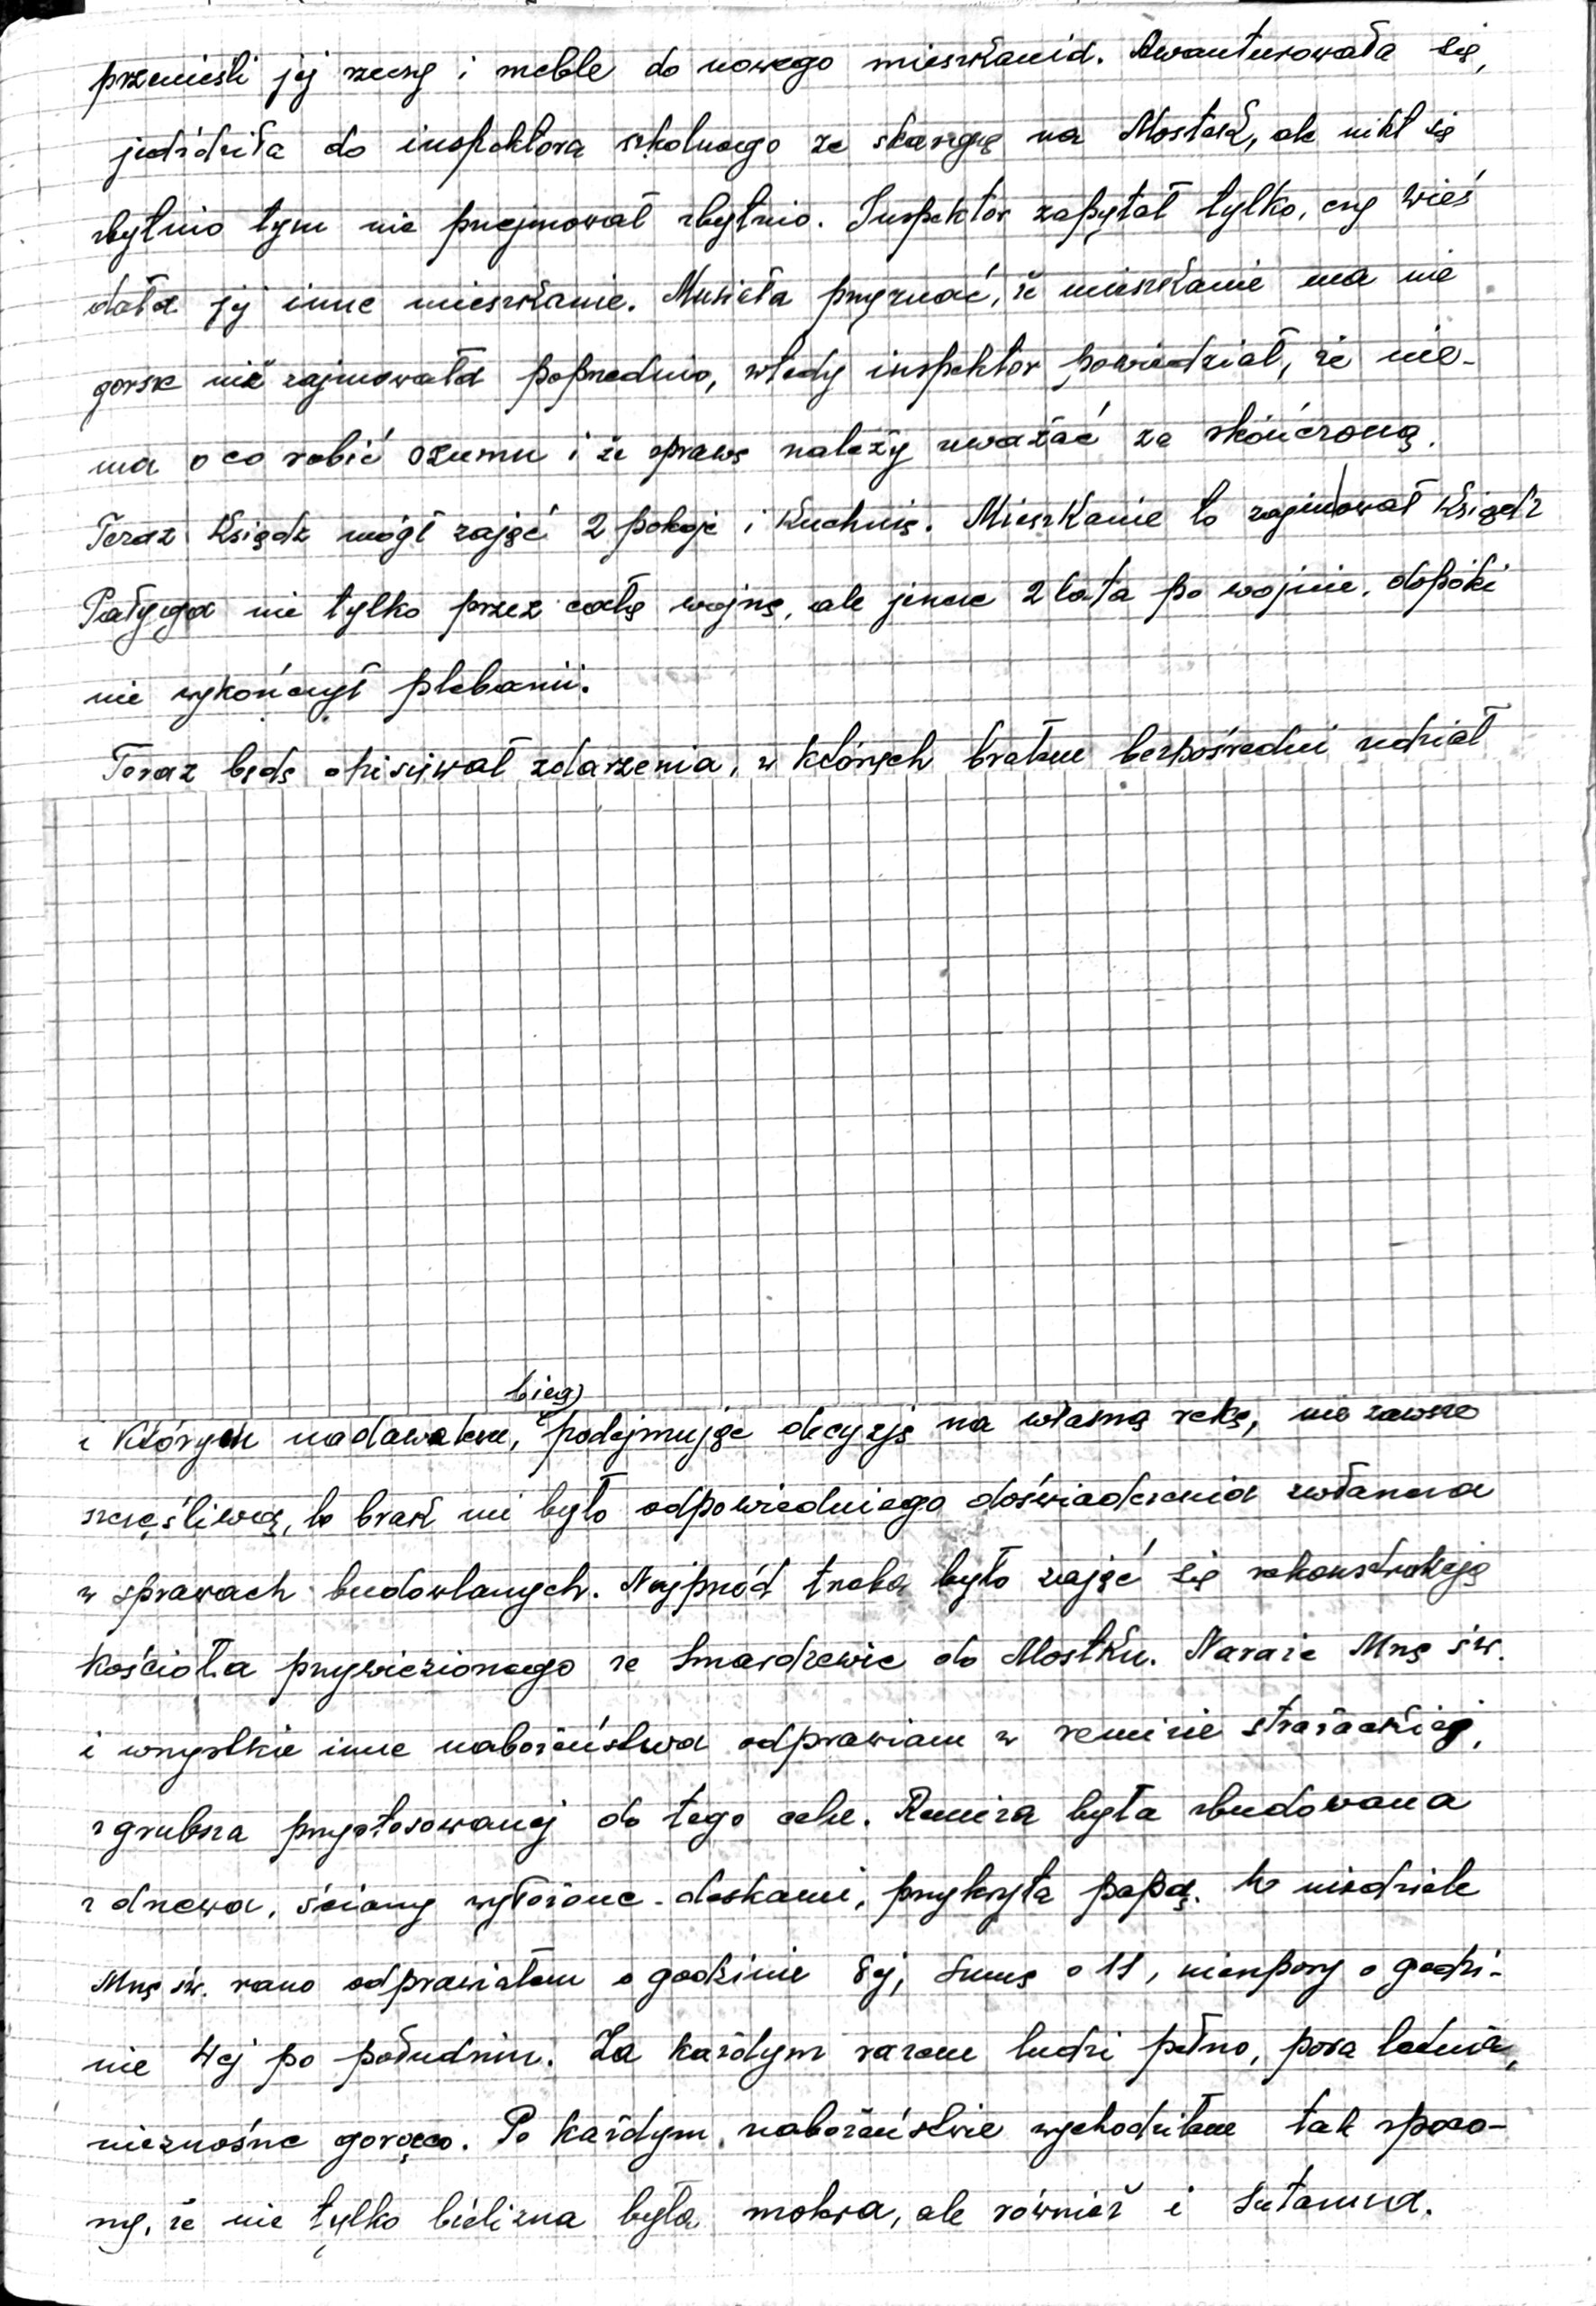 przenieśli jej rzeczy i meble do nowego mieszkania. Awanturowała się,
jeździła do inspektora szkolnego ze skargą na Mostek, ale nikt się
zbytnio tym nie przejmował zbytnio. Inspektor zapytał tylko, czy wieś
dała jej inne mieszkanie. Musiała przyznać, że mieszkanie ma nie
gorsze niż zajmowała poprzednio, wtedy inspektor powiedział, że nie-
ma o co robić szumu i że sprawę należy uważać za skończoną.
Teraz Ksiądz mógł zająć 2 pokoje i Kuchnię. Mieszkanie to zajmował Ksiądz
Pałyga nie tylko przez całą wojnę, ale jeszcze 2 lata po wojnie, dopóki
nie wykończył plebanii.
Teraz będę opisywał zdarzenia, w których brałem bezpośredni udział
bieg
i Którym nadawałem, podejmując decyzję na własną rękę, nie zawsze
szczęśliwą, bo brak mi było odpowiedniego doświadczenia zwłaszcza
w sprawach budowlanych. Najprzód trzeba było zająć się rekonstrukcją
Kościoła przywiezionego ze Smardzewic do Mostku. Narazie Mszę św.
i wszystkie inne nabożeństwa odprawiam w remizie strażackiej,
z grubsza przystosowanej do tego celu. Remiza była zbudowana
z drzewa, ściany wyłożone deskami, przykryta papą. W niedziele
Mszę św. rano odprawiałem o godzinie 8ej, Sumę o 11, nieszpory o godzi-
nie 4ej po południu. Za każdym razem ludzi pełno, pora letnia,
nieznośne gorąco. Po każdym nabożeństwie wychodziłem tak spoco-
ny, że nie tylko bielizna była mokra, ale również i Sutanna.